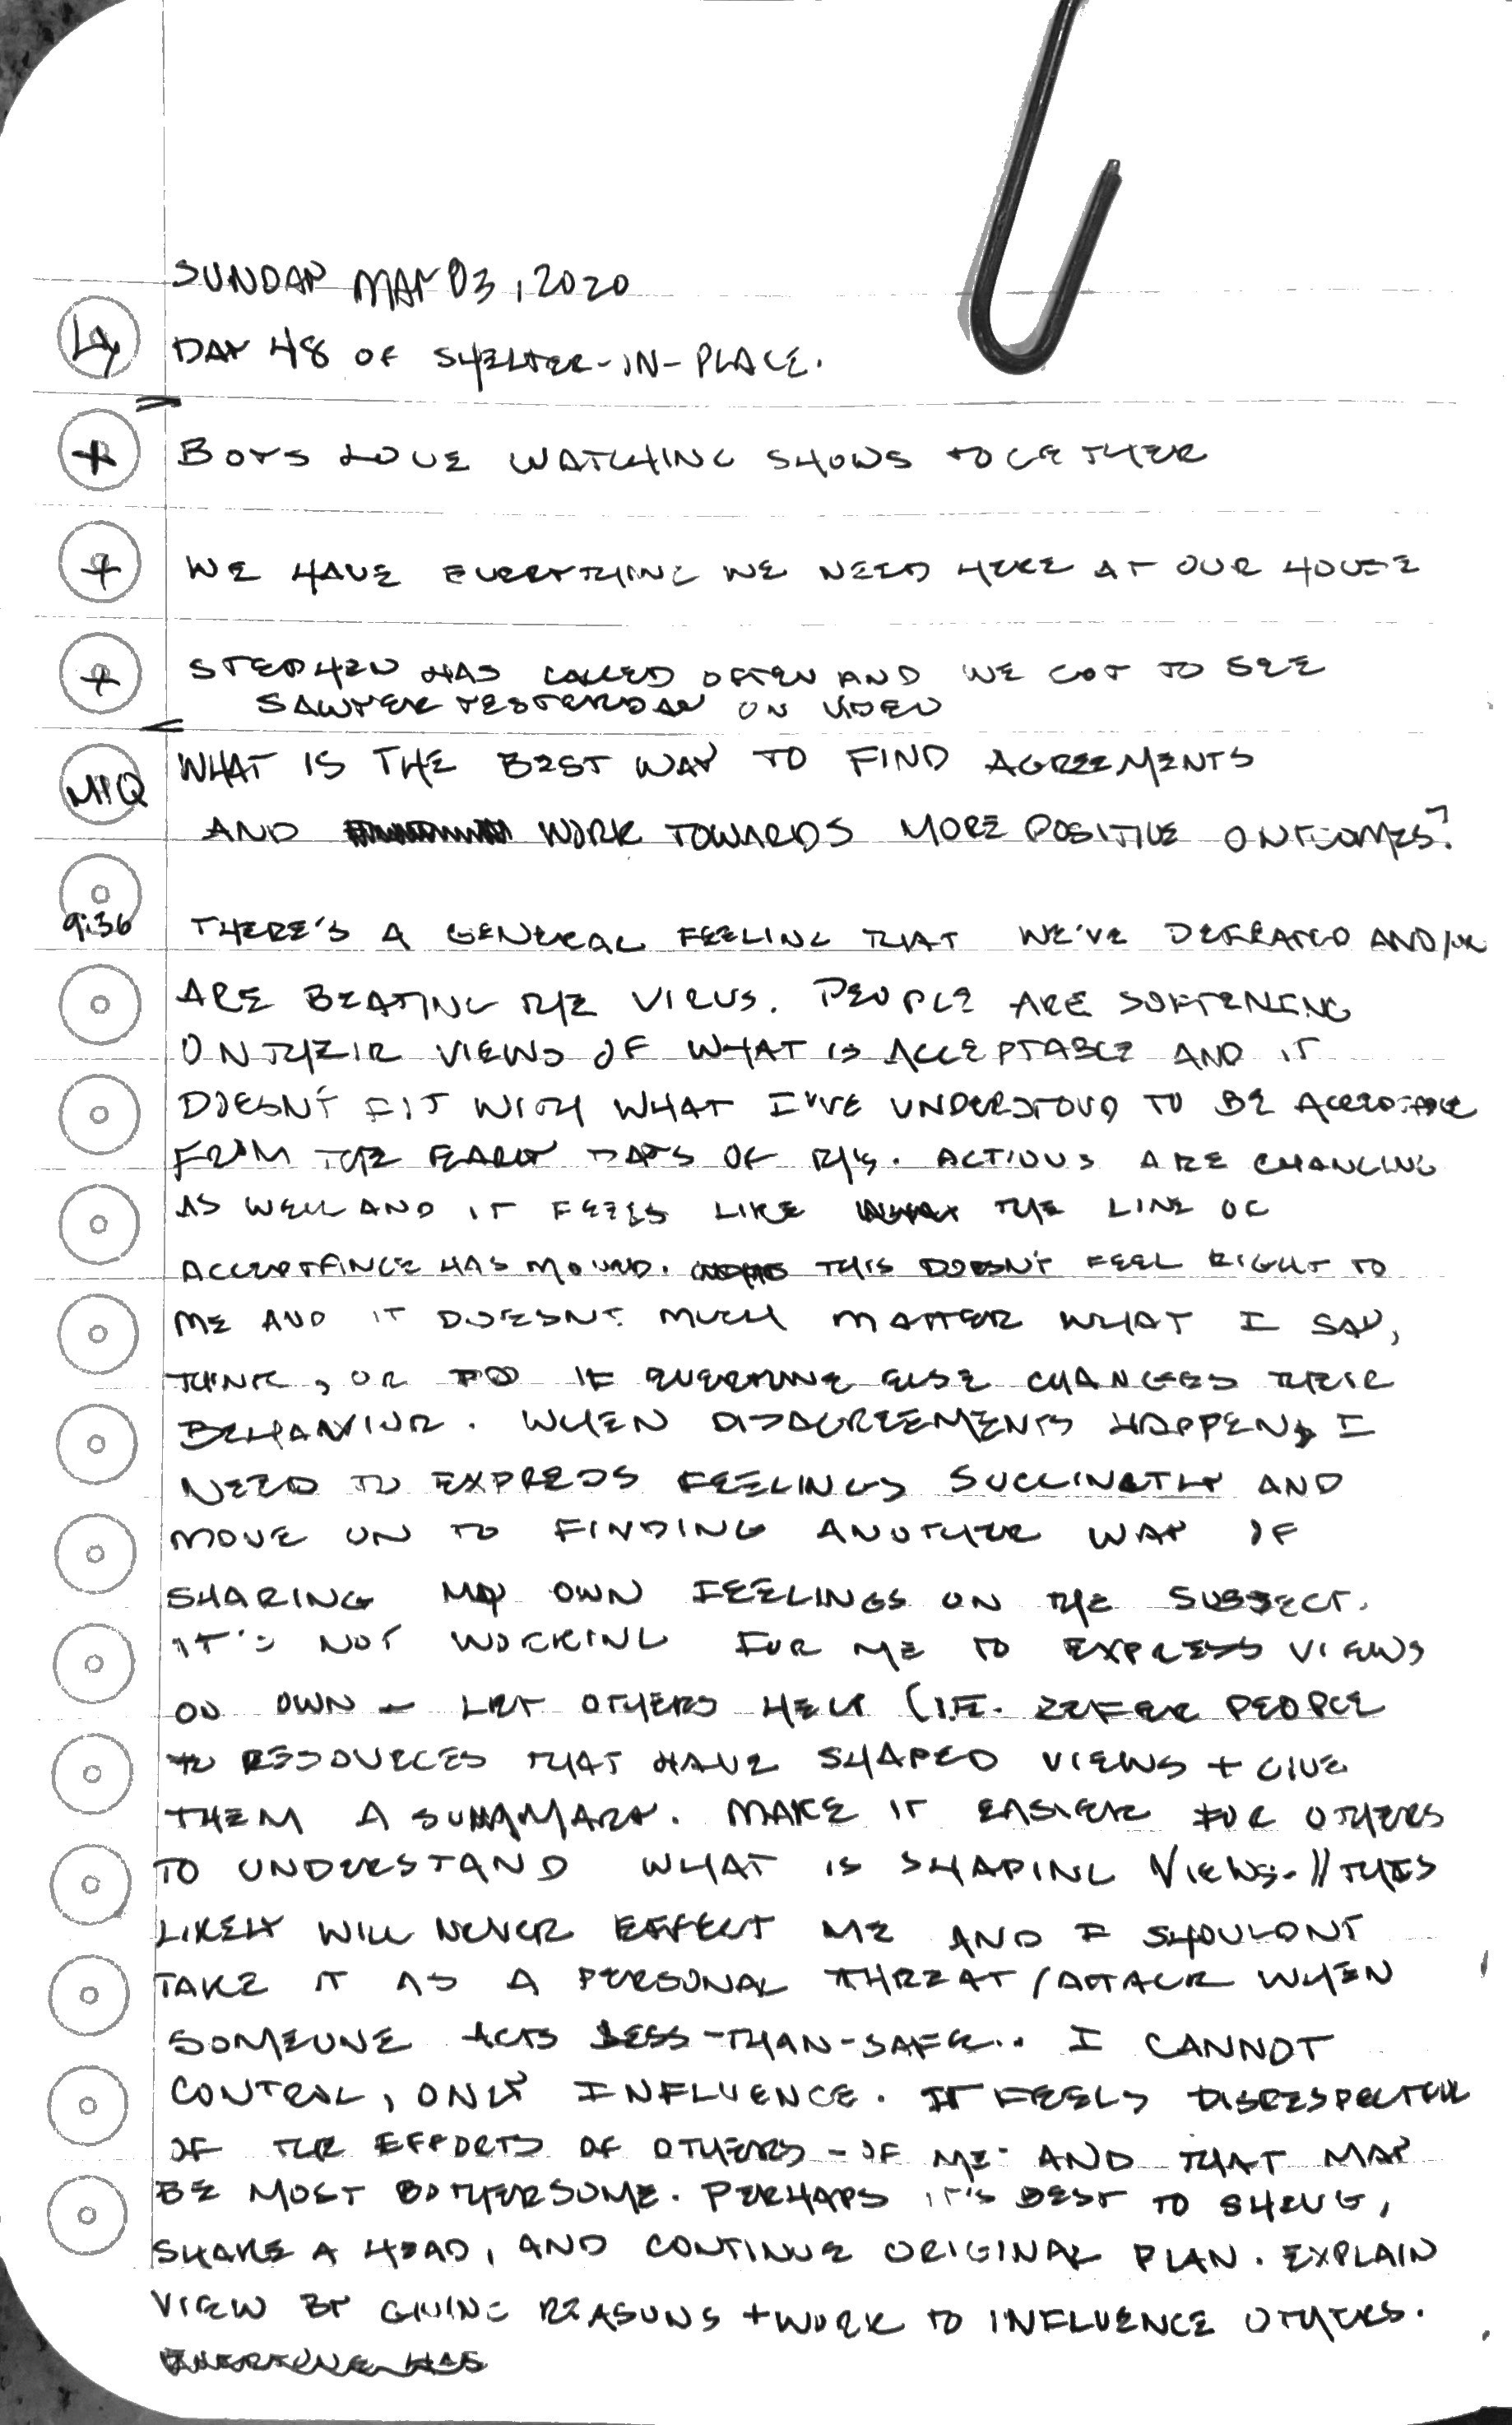 SUNDAY MAY 03, 2020
DAY 48 OF SHELTER-IN-PLACE.
+ BOYS LOVE WATCHING SHOWS TOGETHER
+ WE HAVE EVERYTHING WE NEED HERE AT OUR HOUSE
+ STEPHEN HAS CALLED OFTEN AND WE GOT TO SEE
SAWYER YESTERDAY ON VIDEO
MIQ WHAT IS THE BEST WAY TO FIND AGREEMENTS
AND WORK TOWARDS MORE POSITIVE OUTCOMES?
9:36 THERE'S A GENERAL FEELING THAT WE'VE DEFEATED AND/OR
ARE BEATING THE VIRUS. PEOPLE ARE SOFTENING
ON THEIR VIEWS OF WHAT IS ACCEPTABLE AND IT
DOESN'T FIT WITH WHAT I'VE UNDERSTOOD TO BE ACCEPTABLE
FROM THE EARLY DAYS OF THIS. ACTIONS ARE CHANGING
AS WELL AND IT FEELS LIKE THE LINE OF
ACCEPTANCE HAS MOVED. THIS DOESN'T FEEL RIGHT TO
ME AND IT DOESN'T MUCH MATTER WHAT I SAY,
THINK, OR DO IF EVERYONE ELSE CHANGES THEIR
BEHAVIOR. WHEN DISAGREEMENTS HAPPEN, I
NEED TO EXPRESS FEELINGS SUCCINCTLY AND
MOVE ON TO FINDING ANOTHER WAY OF
SHARING MY OWN FEELINGS ON THE SUBJECT.
IT'S NOT WORKING FOR ME TO EXPRESS VIEWS
ON OWN - LET OTHERS HELP (I.E. REFER PEOPLE
TO RESOURCES THAT HAVE SHAPED VIEWS + GIVE
THEM A SUMMARY. MAKE IT EASIER FOR OTHERS
TO UNDERSTAND WHAT IS SHAPING VIEWS. // THIS
LIKELY WILL NEVER EFFECT ME AND I SHOULDN'T
TAKE IT AS A PERSONAL THREAT/ATTACK WHEN
SOMEONE ACTS LESS-THAN-SAFE.. I CANNOT
CONTROL, ONLY INFLUENCE. IT FEELS DISRESPECTFUL
OF THE EFFORTS OF OTHERS - OF ME - AND THAT MAY
BE MOST BOTHERSOME. PERHAPS IT'S BEST TO SHRUG,
SHAKE A HEAD, AND CONTINUE ORIGINAL PLAN. EXPLAIN
VIEW BY GIVING REASONS + WORK TO INFLUENCE OTHERS.